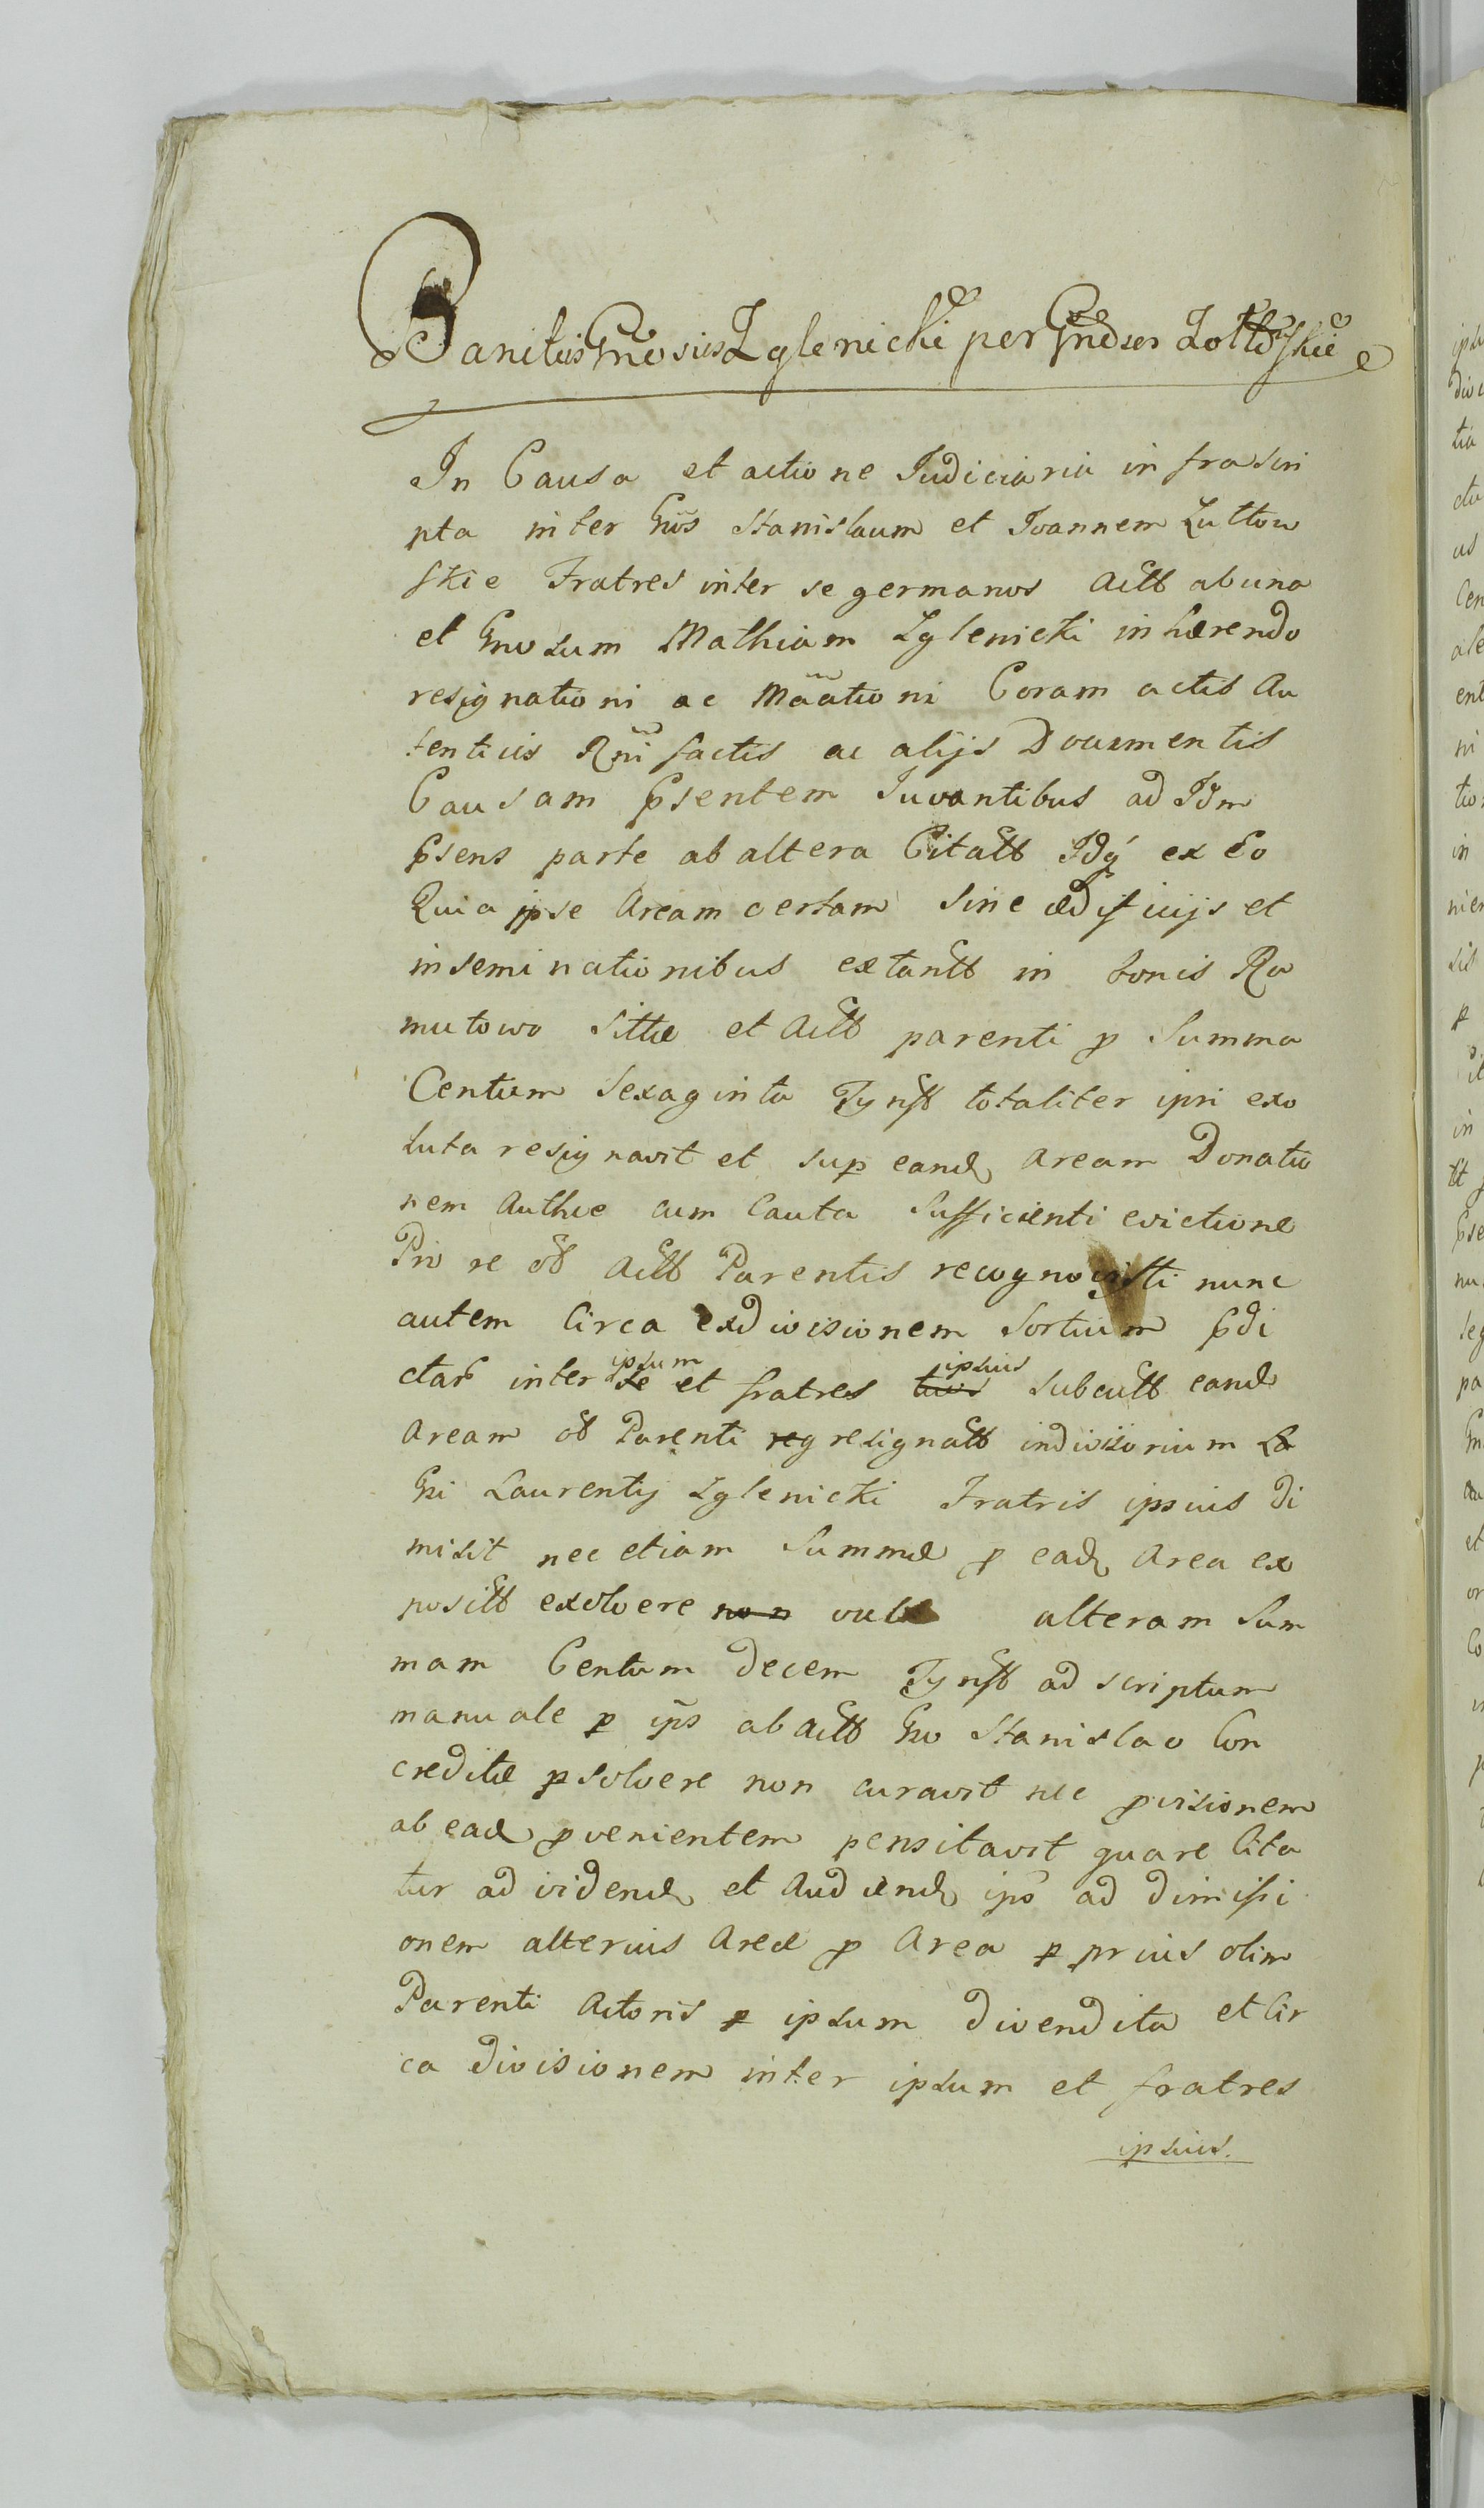 Banitus Gnosus Zglenicki per Gnosos Zołtowskie
In Causa et actione Judiciaria infrascri
pta inter Gnōs Stanislaum et Joannem Zułtow
skie Fratres inter se germanos Actt ab una
et Gnosum Mathiam Zglenicki inhærendo
resignationi ac Māationi Coram actis Au
tenticis Rnī factis ac alijs Documentis
Causam psentem Juvantibus ad Idm
psens parte ab altera Citatt Idq ex Eo
Quia ipse Aream certam sine ædificijs et
inseminationibus extantt in bonis Ra
mutowo sittæ et Actt parenti p Summa
Centum Sexaginta Tynff totaliter ipsi exo
luta resignavit et sup eand Aream Donatio
nem Authce cum Cauta Sufficienti evictione
Pro re ob Actt Parentis recognovisti nunc
autem Circa exdivisionem Sortium pdi
ctar inter se ipsum et fratres tuos ipsius subcutt eand
Aream ob Parenti reg resignatt indivisorium La
Gsi Laurentij Zglenicki Fratris ipsius di
misit nec etiam Summæ p ead Area ex
positt exolvere non vult alteram Sum
mam Centum decem Tynff ad scriptum
manuale p ips ab Actt Gso Stanislao Con
creditæ psolvere non curavit nec pvisionem
ab ead pvenientem pensitavit quare Cita
tur ad vidend et Audiend ips ad dimissi
onem alterius Areæ p Area p prius olim
Parenti Actoris p ipsum divendita et Cir
ca divisionem inter ipsum et fratres
ipsius.